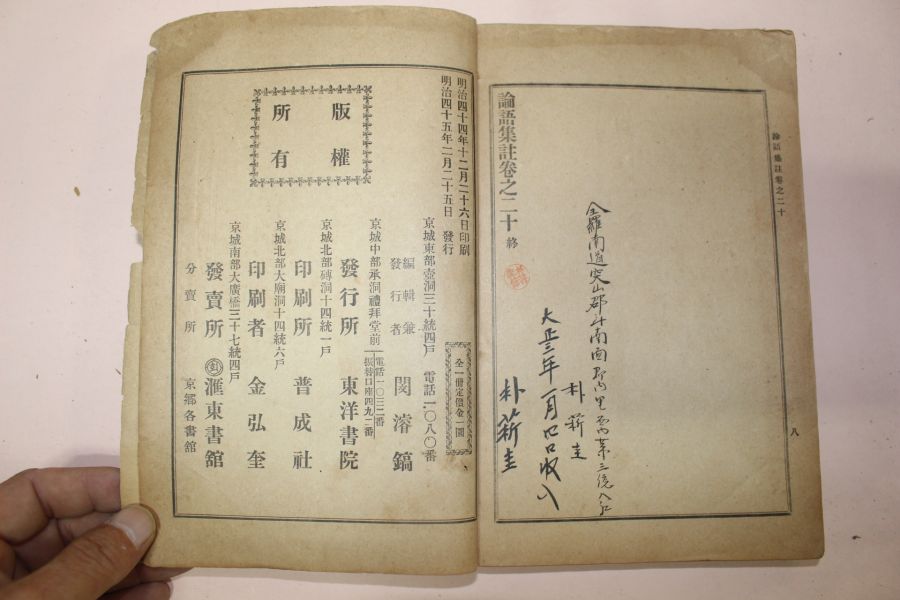 論語集註卷之二十
論語集註卷之二十 終
全羅南道突山郡斗南面
朴薪圭
大正三年一月
收入
朴薪圭
八
明治四十四年十二月二十六日印刷
明治四十五年二月二十五日 發行
全一冊定價金一圓
京城東部壺洞三十統四戶 電話一〇八〇番
編輯兼發行者 閔濬鎬
京城中部承洞禮拜堂前 電話一〇三二番
振替口座四九二番
發行所 東洋書院
京城北部磚洞十四統一戶
印刷所 普成社
京城北部大廟洞十四統六戶
印刷者 金弘奎
京城南部大廣橋三十七統四戶
發賣所 滙東書舘
分賣所 京鄕各書舘
版權所有